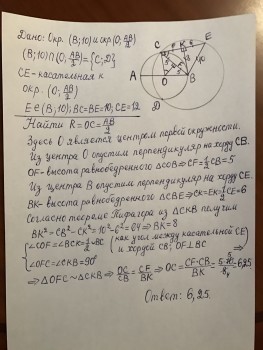 Дано: Окр. (B; 10) и окр. (O; AB/2)
(B; 10)∩(O; AB/2)={C; D}
CE-касательная к
окр. (O; AB/2)
E∈(B; 10); BC=BE=10; CE=12
Найти R=OC=AB/2
Здесь O является центром первой окружности.
Из центра O опустим перпендикуляр на хорду CB.
OF-высота равнобедренного ΔCOB⇒CF=1/2CB=5
Из центра B опустим перпендикуляр на хорду CE.
BK-высота равнобедренного ΔCBE⇒CK=EK=1/2CE=6
Согласно теореме Пифагора из ΔCKB получим
BK²=CB²-CK²=10²-6²=64⇒BK=8
∠COF=∠BCK=1/2 BC (как угол между касательной CE
и хордой CB; OF⊥BC
∠OFC=∠CKB=90°
⇒ΔOFC~ΔCKB⇒OC/CB=CF/BK⇒OC=CF·CB/BK=5·10/8=6,25
Ответ: 6,25
A
B
C
D
E
F
K
O
10